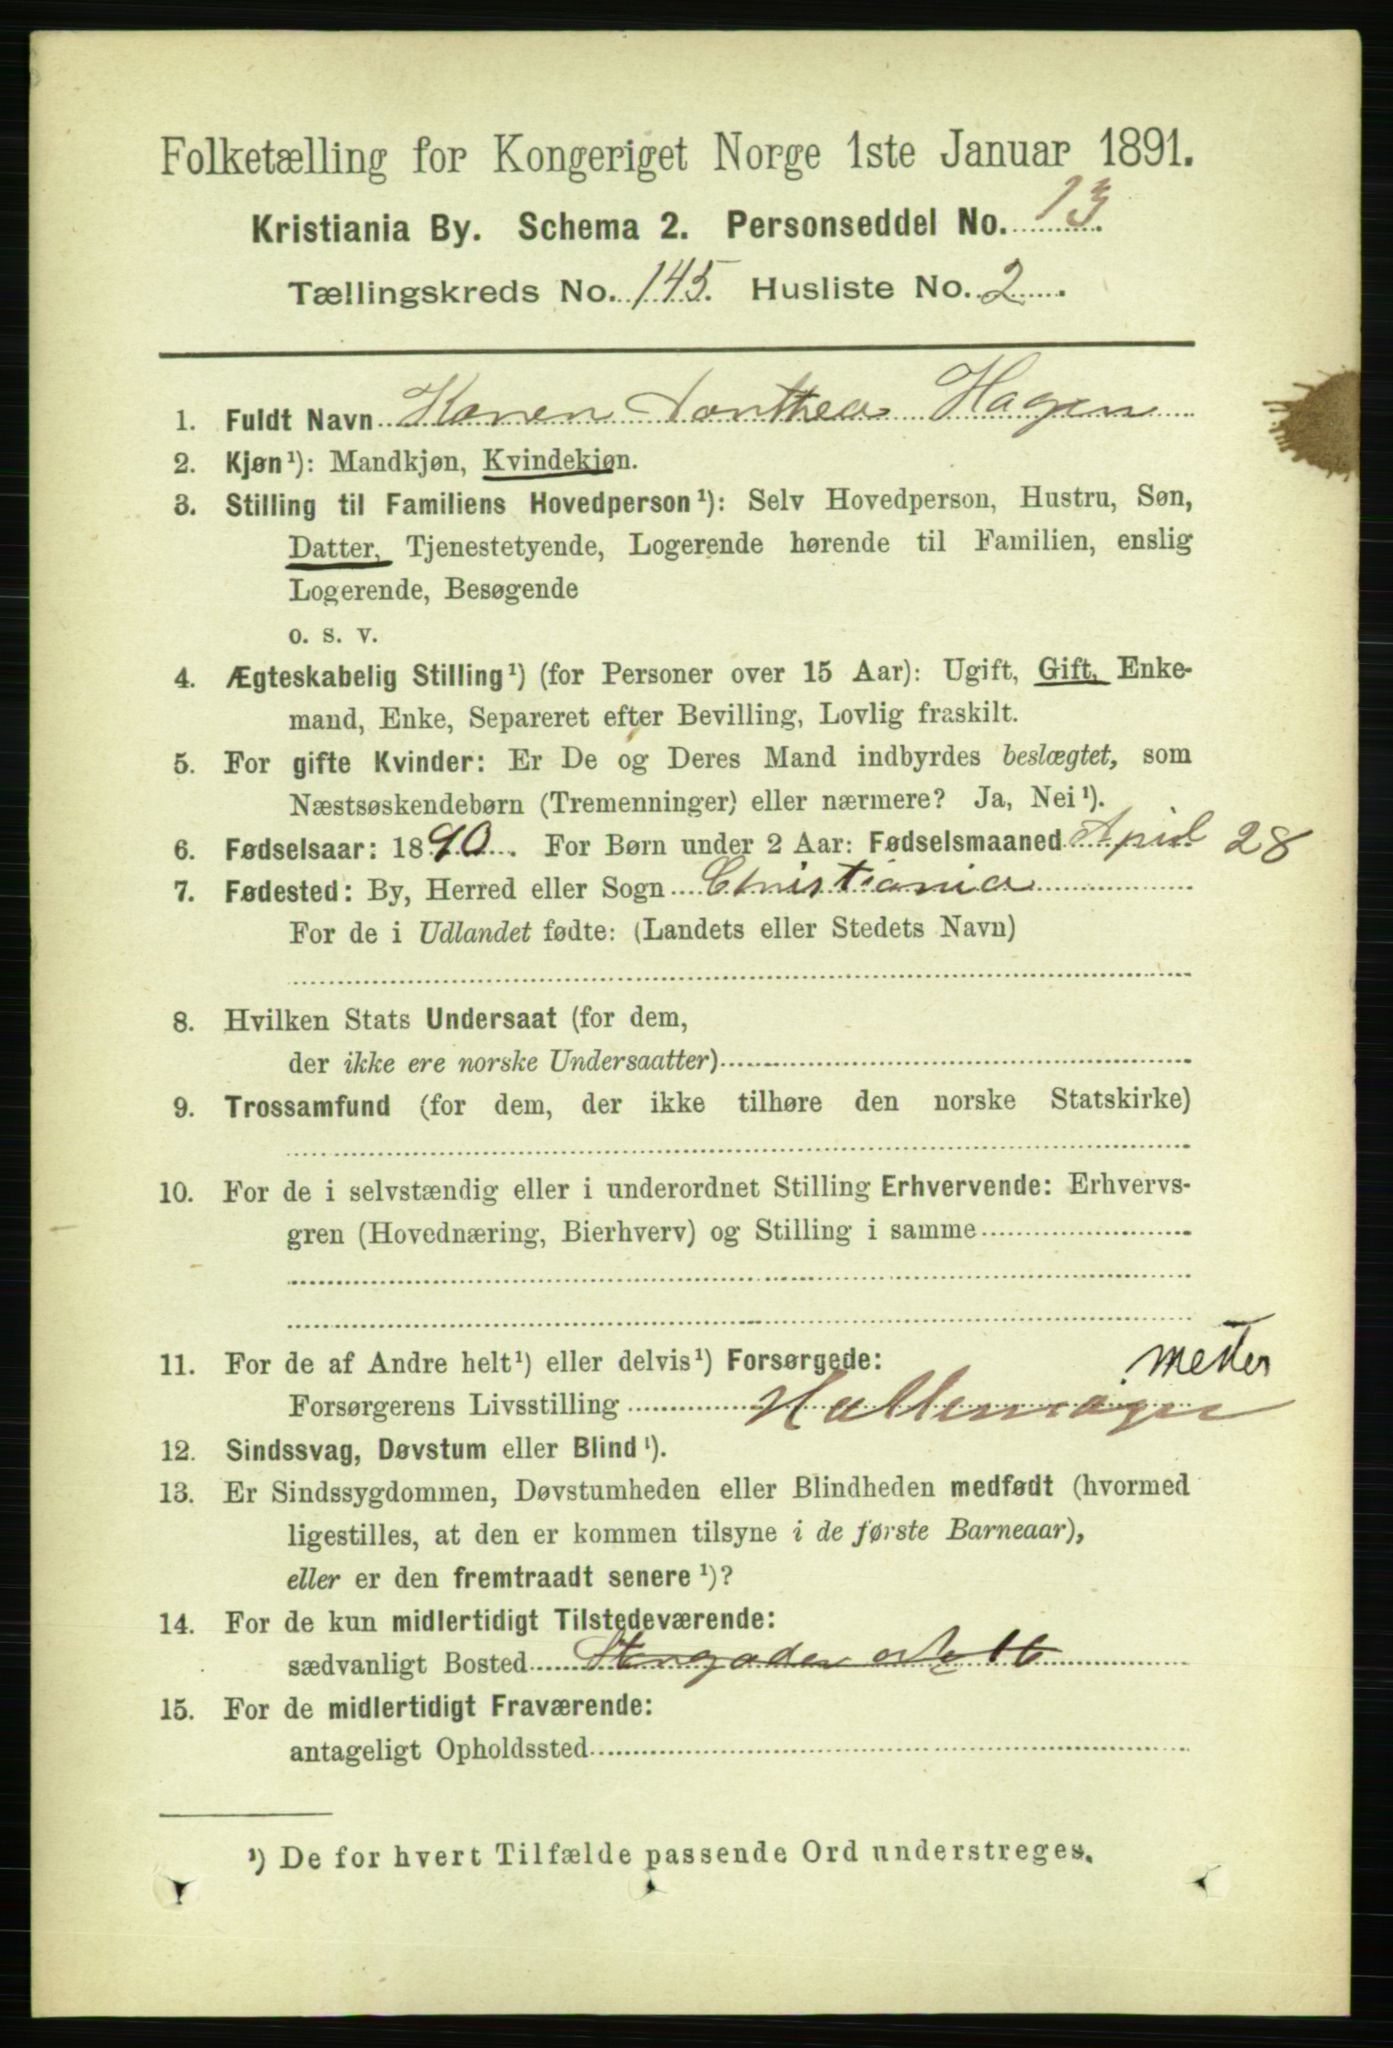 Folketælling for Kongeriget Norge 1ste Januar 1891.
Kristiania By. Schema 2. Personseddel No. 13.
Tællingskreds No. 145. Husliste No. 2
1. Fuldt Navn Karen Dorthea Hagen
2. Kjøn¹): Mandkjøn, Kvindekjøn.
3. Stilling til Familiens Hovedperson¹): Selv Hovedperson, Hustru, Søn,
Datter, Tjenestetyende, Logerende hørende til Familien, enslig
Logerende, Besøgende
o. s. v.
4. Ægteskabelig Stilling¹) (for Personer over 15 Aar): Ugift, Gift, Enke-
mand, Enke, Separeret efter Bevilling, Lovlig fraskilt.
5. For gifte Kvinder: Er De og Deres Mand indbyrdes beslægtet, som
Næstsøskendebørn (Tremenninger) eller nærmere? Ja, Nei¹).
6. Fødselsaar: 1890. For Børn under 2 Aar: Fødselsmaaned April 28
7. Fødested: By, Herred eller Sogn Christiania
For de i Udlandet fødte: (Landets eller Stedets Navn)
8. Hvilken Stats Undersaat (for dem,
der ikke ere norske Undersaatter)
9. Trossamfund (for dem, der ikke tilhøre den norske Statskirke)
10. For de i selvstændig eller i underordnet Stilling Erhvervende: Erhvervs-
gren (Hovednæring, Bierhverv) og Stilling i samme
11. For de af Andre helt¹) eller delvis¹) Forsørgede:
Forsørgerens Livsstilling
12. Sindssvag, Døvstum eller Blind¹).
13. Er Sindssygdommen, Døvstumheden eller Blindheden medfødt (hvormed
ligestilles, at den er kommen tilsyne i de første Barneaar),
eller er den fremtraadt senere¹)?
14. For de kun midlertidigt Tilstedeværende:
sædvanligt Bosted Stengaden No 16
15. For de midlertidigt Fraværende:
antageligt Opholdssted
¹) De for hvert Tilfælde passende Ord understreges.